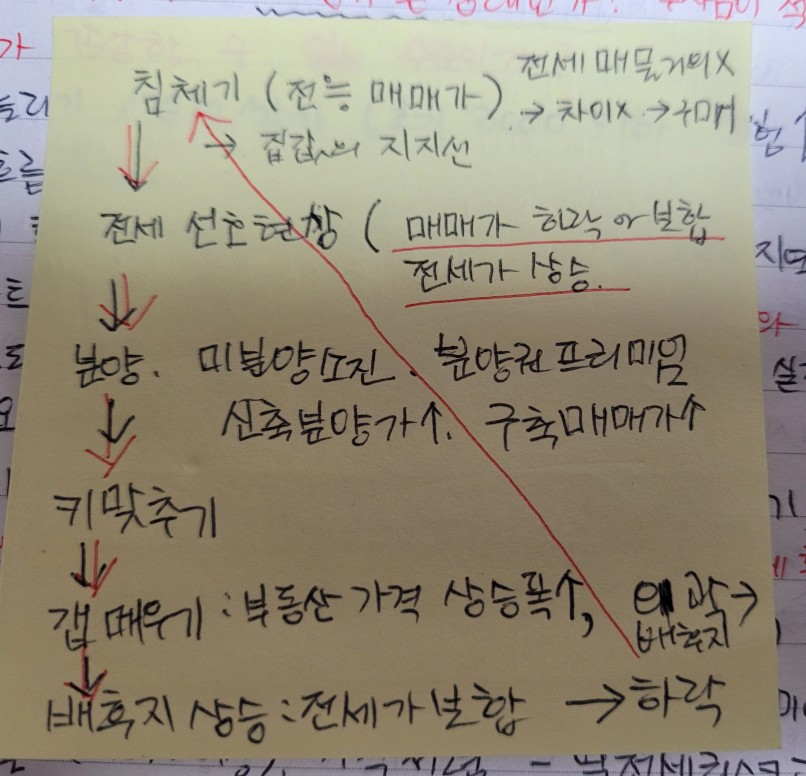 침체기 (전능 매매가) 전세 매물거의X
→ 차이X → 구매
→ 집값의 지지선
전세 선호현상 ( 매매가 하락 or 보합
전세가 상승.
분양. 미분양소진. 분양권프리미엄
신축분양가↑. 구축매매가↑
키맞추기
갭메우기 : 부동산 가격 상승폭↑, 외곽→
배후지
배후지 상승 : 전세가 보합 → 하락